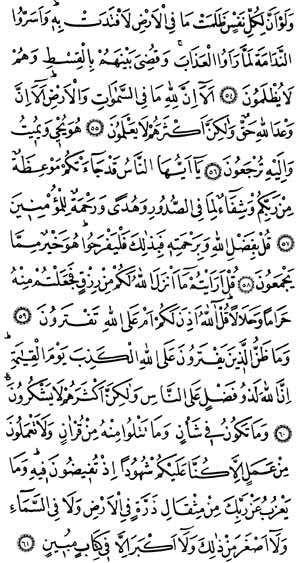 وَلَوْ اَنَّ لِكُلِّ نَفْسٍ ظَلَمَتْ مَا فِي الْاَرْضِ لَافْتَدَتْ بِهٖ وَاَسَرُّوا
النَّدَامَةَ لَمَّا رَاَوُا الْعَذَابَ وَقُضِيَ بَيْنَهُمْ بِالْقِسْطِ وَهُمْ
لَا يُظْلَمُونَ ﴿٥٤﴾ اَلَا اِنَّ لِلّٰهِ مَا فِي السَّمٰوَاتِ وَالْاَرْضِ اَلَا اِنَّ
وَعْدَ اللهِ حَقٌّ وَلٰكِنَّ اَكْثَرَهُمْ لَا يَعْلَمُونَ ﴿٥٥﴾ هُوَ يُحْيِي وَيُمِيتُ
وَاِلَيْهِ تُرْجَعُونَ ﴿٥٦﴾ يَا اَيُّهَا النَّاسُ قَدْ جَاءَتْكُمْ مَوْعِظَةٌ
مِنْ رَبِّكُمْ وَشِفَاءٌ لِمَا فِي الصُّدُورِ وَهُدًى وَرَحْمَةٌ لِلْمُؤْمِنِينَ
﴿٥٧﴾ قُلْ بِفَضْلِ اللهِ وَبِرَحْمَتِهٖ فَبِذٰلِكَ فَلْيَفْرَحُوا هُوَ خَيْرٌ مِمَّا
يَجْمَعُونَ ﴿٥٨﴾ قُلْ اَرَاَيْتُمْ مَا اَنْزَلَ اللهُ لَكُمْ مِنْ رِزْقٍ فَجَعَلْتُمْ مِنْهُ
حَرَامًا وَحَلَالًا قُلْ آٰللهُ اَذِنَ لَكُمْ اَمْ عَلَى اللهِ تَفْتَرُونَ ﴿٥٩﴾
وَمَا ظَنُّ الَّذِينَ يَفْتَرُونَ عَلَى اللهِ الْكَذِبَ يَوْمَ الْقِيٰمَةِ
اِنَّ اللهَ لَذُو فَضْلٍ عَلَى النَّاسِ وَلٰكِنَّ اَكْثَرَهُمْ لَا يَشْكُرُونَ
﴿٦٠﴾ وَمَا تَكُونُ فِي شَأْنٍ وَمَا تَتْلُوا مِنْهُ مِنْ قُرْاٰنٍ وَلَا تَعْمَلُونَ
مِنْ عَمَلٍ اِلَّا كُنَّا عَلَيْكُمْ شُهُودًا اِذْ تُفِيضُونَ فِيهِ وَمَا
يَعْزُبُ عَنْ رَبِّكَ مِنْ مِثْقَالِ ذَرَّةٍ فِي الْاَرْضِ وَلَا فِي السَّمَاءِ
وَلَا اَصْغَرَ مِنْ ذٰلِكَ وَلَا اَكْبَرَ اِلَّا فِي كِتَابٍ مُبِينٍ ﴿٦١﴾